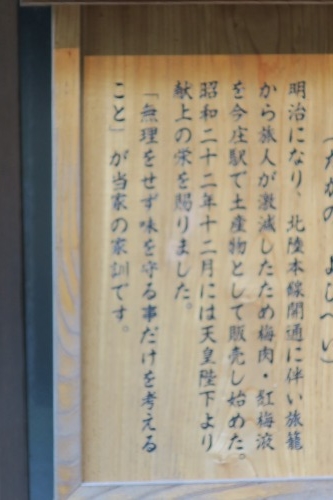 (たねの よしべい)
明治になり、北陸本線開通に伴い旅籠
から旅人が激減したため梅肉・紅梅液
を今庄駅で土産物として販売し始めた。
昭和二十二年十二月には天皇陛下より
献上の栄を賜りました。
「無理をせず味を守る事だけを考える
こと」が当家の家訓です。